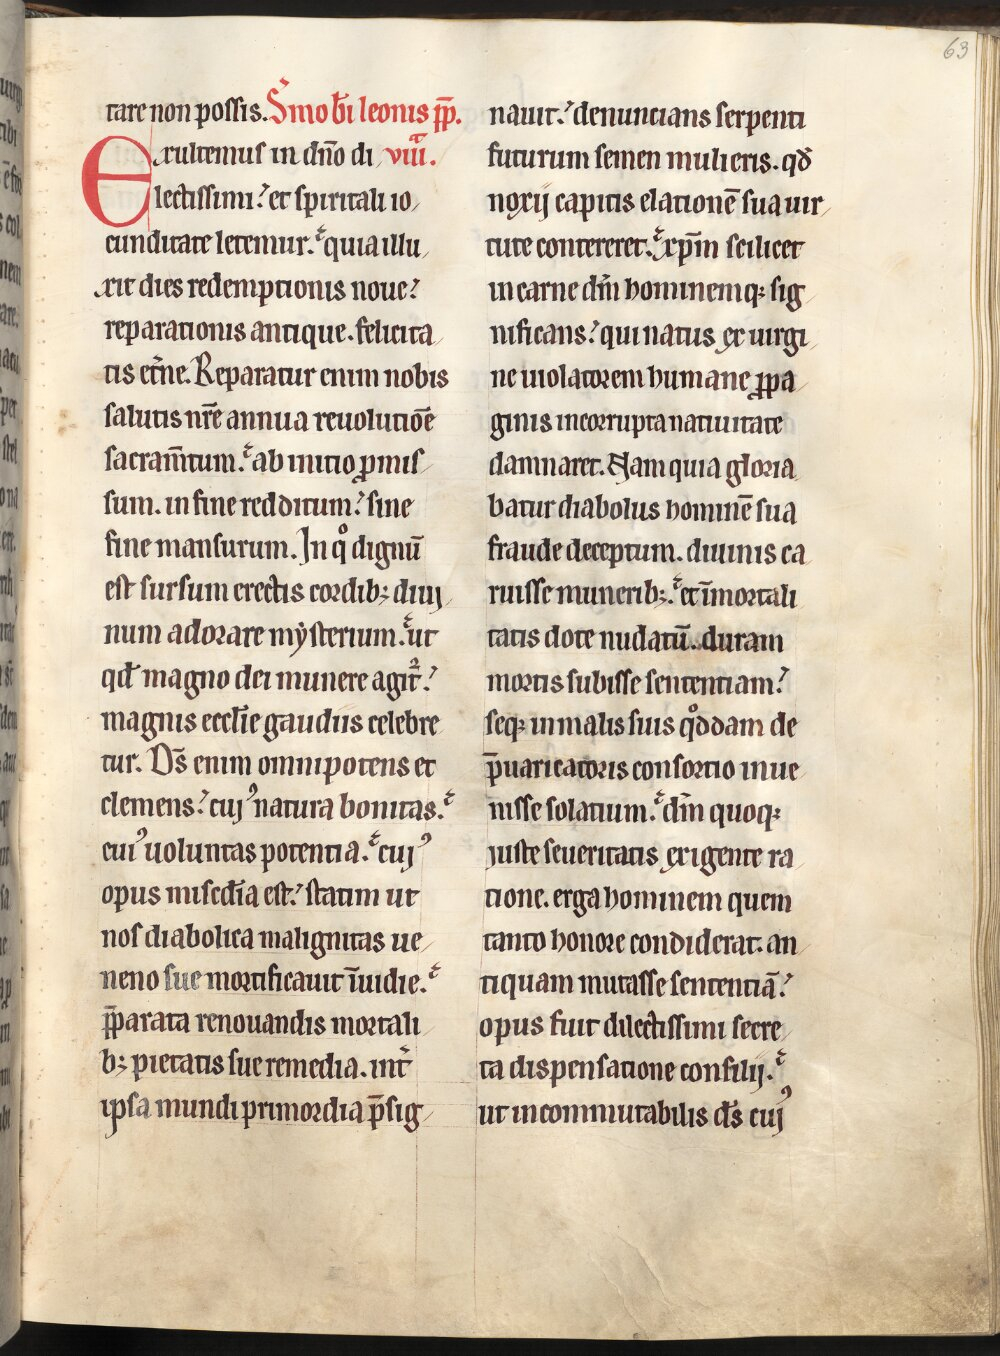 63
tare non possis. S̄mo b̄i leonis p̄p̄.
Exultemus in dn̄o di viiiᵃ.
lectissimi? et spiritali io
cunditate letemur. quia illu
xit dies redemptionis noue?
reparationis antique. felicita
tis et̄ne. Reparatur enim nobis
salutis nr̄e annua reuolutiōe
sacram̄tum. ab initio ꝓmis
sum. in fine redditum? sine
fine mansurum. In qͦ dignū
est sursum erectis cordib; diui
num adorare mysterium. ut
qđ magno dei munere agit᷑?
magnis eccl̄ie gaudiis celebre
tur. Ds̄ enim omnipotens et
clemens? cuiꝰ natura bonitas.
cuiꝰ uoluntas potentia. cuiꝰ
opus miscd̄ia est? statim ut
nos diabolica malignitas ue
neno sue mortificauit īuidie.
p̄parata renouandis mortali
b; pietatis sue remedia. int̄
ipsa mundi primordia p̄sig
nauit? denuncians serpenti
futurum semen mulieris. qđ
noxij capitis elationē sua uir
tute contereret. xp̄m scilicet
in carne dm̄ hominemq; sig
nificans? qui natus ex uirgi
ne uiolatorem humane ꝓpa
ginis incorrupta natiuitate
damnaret. Nam quia gloria
batur diabolus hominē sua
fraude deceptum. diuinis ca
ruisse munerib;. et īmortali
tatis dote nudatū. duram
mortis subisse sententiam?
seq; in malis suis qͦddam de
p̄uaricatoris consortio inue
nisse solatium. dm̄ quoq;
iuste seueritatis exigente ra
tione. erga hominem quem
tanto honore condiderat. an
tiquam mutasse sententiā?
opus fuit dilectissimi secre
ta dispensatione consilij.
ut incommutabilis ds̄ cuiꝰ